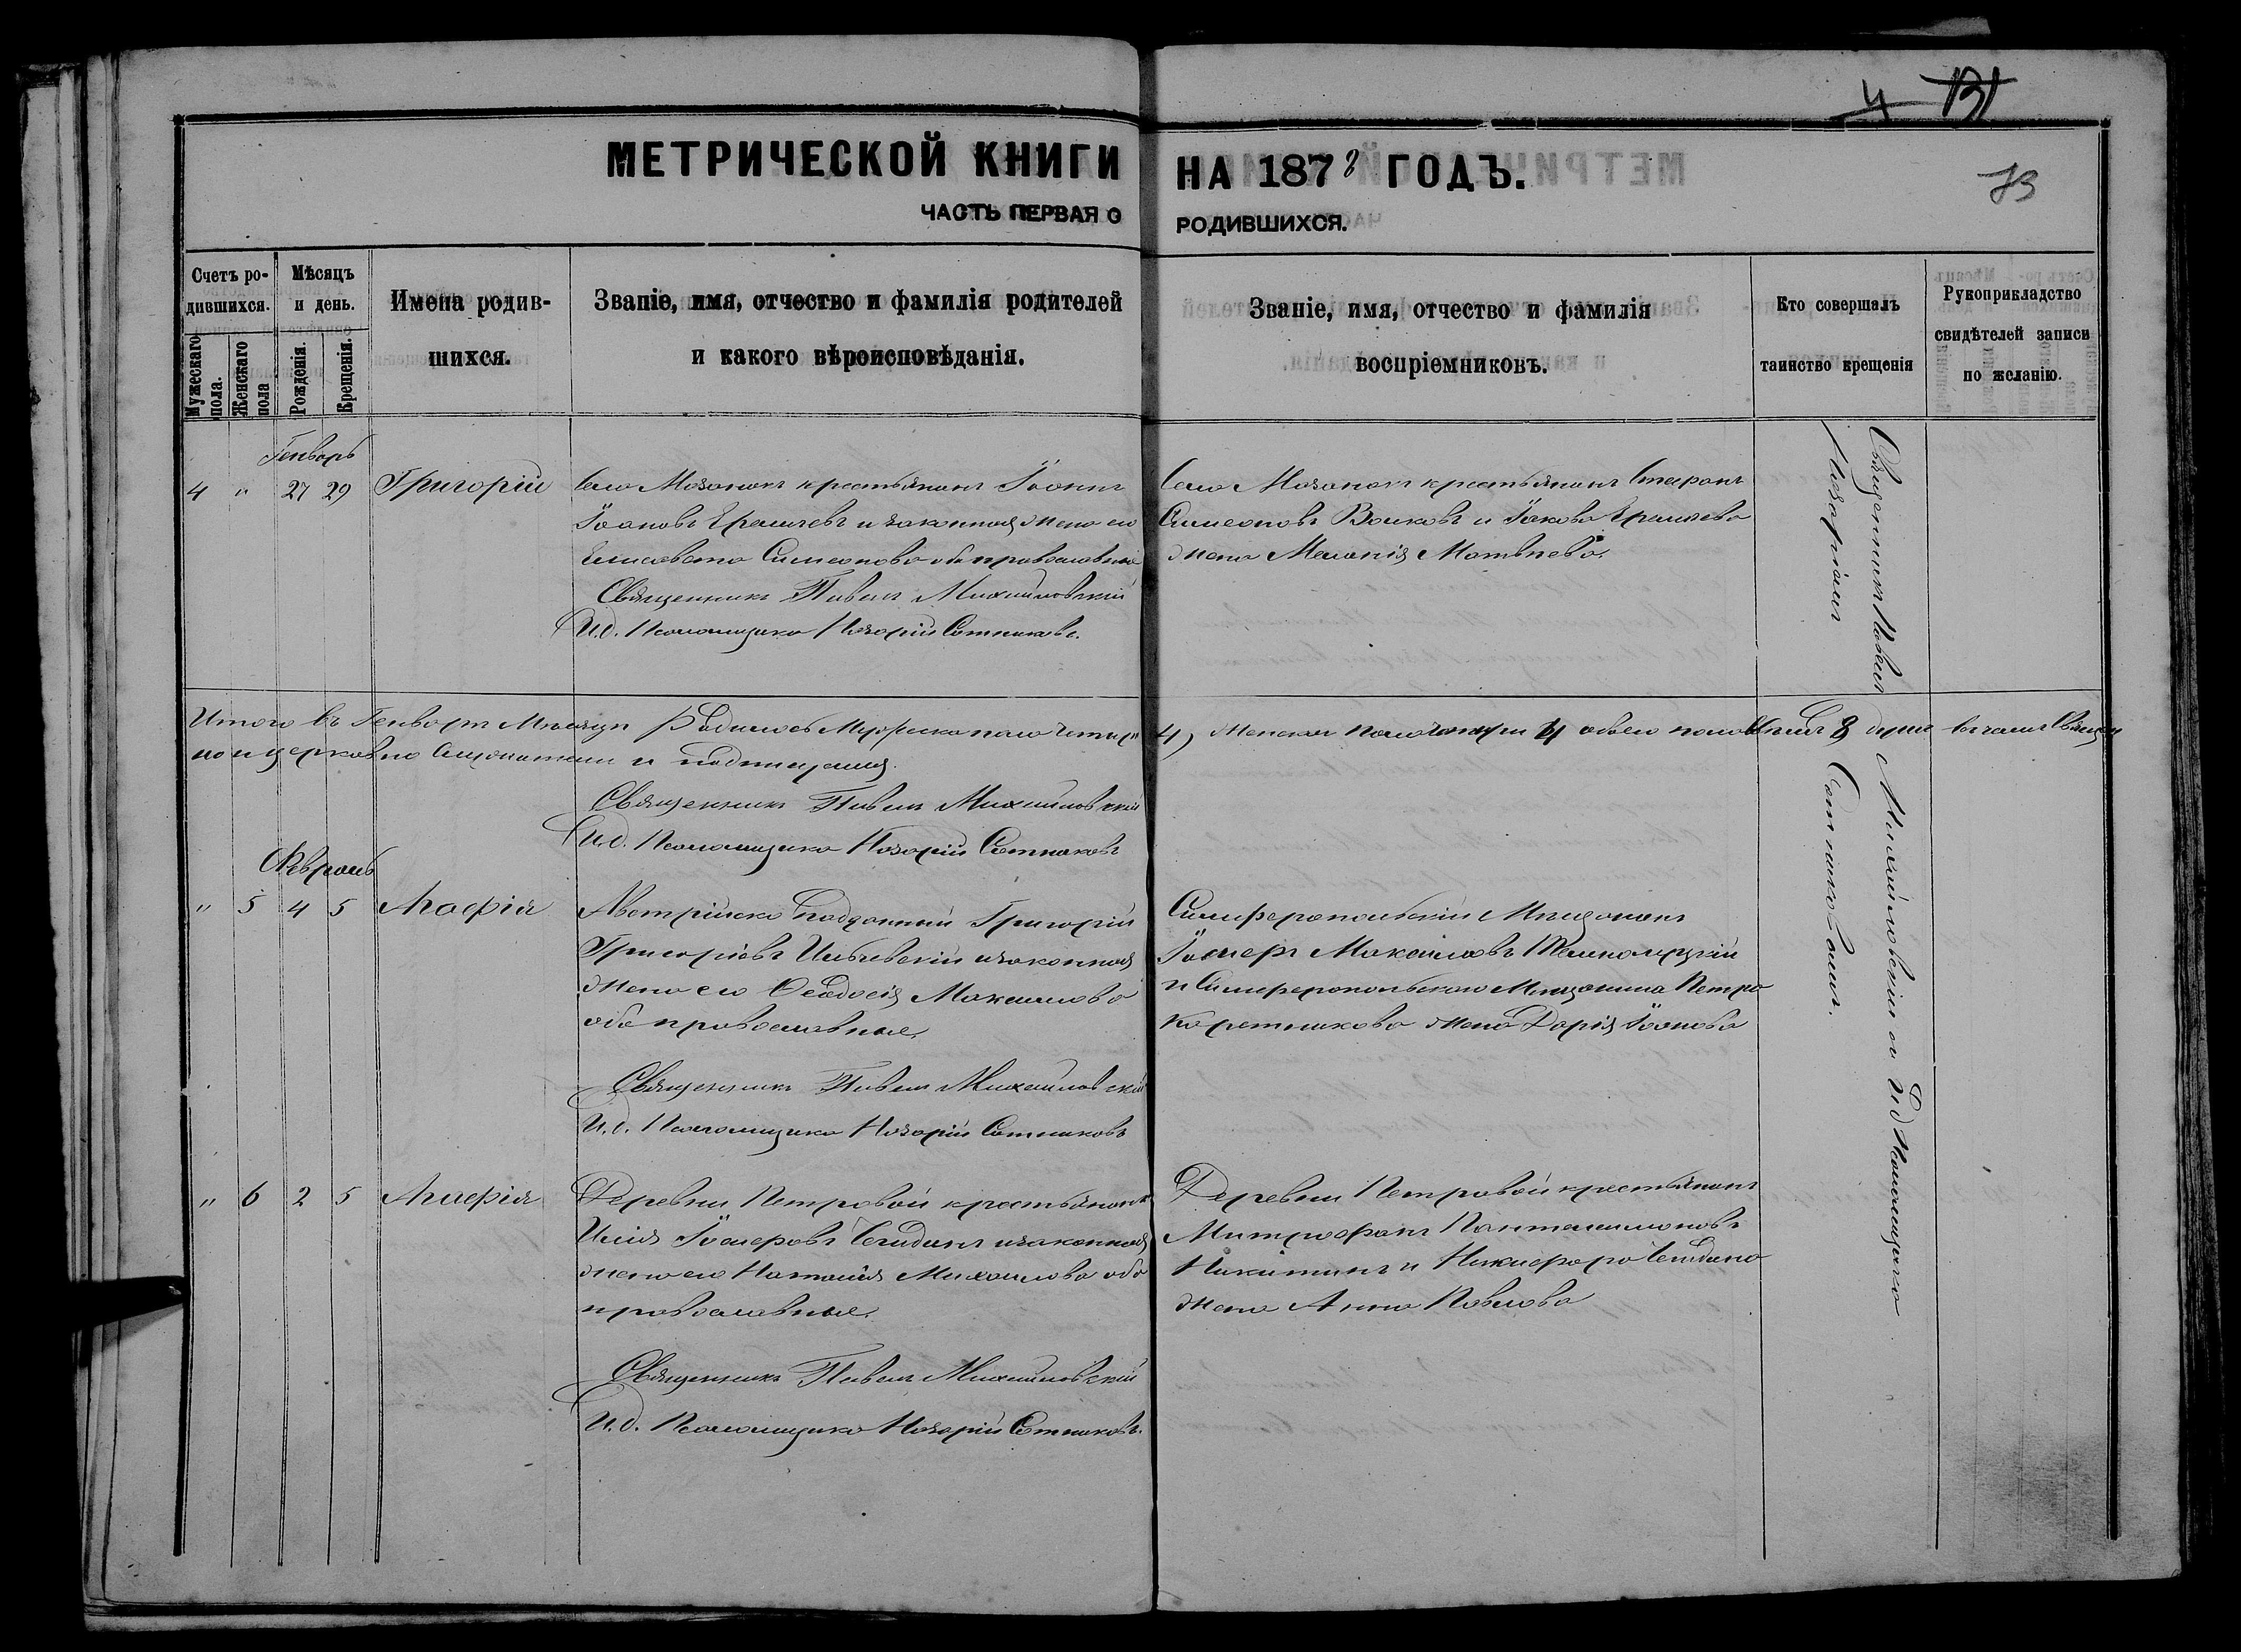 4 131
73
МЕТРИЧЕСКОЙ КНИГИ НА 1878 ГОДЪ.
ЧАСТЬ ПЕРВАЯ О РОДИВШИХСЯ.
Счетъ родившихся.
Мужескаго пола.
Женскаго пола
Мѣсяцъ и день.
Рожденія.
Крещенія.
Имена родившихся.
Званіе, имя, отчество и фамилія родителей
и какого вѣроисповѣданія.
Званіе, имя, отчество и фамилія
воспріемниковъ.
Кто совершалъ
таинство крещенія
Рукоприкладство
свидѣтелей записи
по желанію.
Генварь
4 " 27 29 Григорій
Села Мазанки крестьянинъ Іоаннъ
Іоановъ и законная жена его
Елисавета Симеонова оба православные
Священникъ Павелъ Михайловскій
И.д. Псаломщика Назарій Сотниковъ.
Села Мазанки крестьянинъ Стефанъ
Симеоновъ Волковъ и Іакова
жена Меланія Матвѣева.
Итого въ Генварѣ Мѣсяцѣ Родилось Мужеска пола четыре
4, Женска пола четыри 4 обоего пола 8 душъ
и подпищемся.
Священникъ Павелъ Михайловскій
И.д. Псаломщика Назарій Сотниковъ
Февраль
" 5 4 5 Агафія
Австрійско Подданный Григорій
Григоріевъ и законная
жена его Феодосія Максимова
оба православные.
Священникъ Павелъ Михайловскій
И.д. Псаломщика Назарій Сотниковъ
Симферопольскій Мѣщанинъ
Іосифъ Максимовъ
и Симферопольскаго Мѣщанина Петра
Каретникова жена Дарія Іоанова
" 6 2 5 Агафія
Деревни Петровой крестьянинъ
Илія Іосифовъ и законная
жена его Наталія Михаилова оба
православные.
Священникъ Павелъ Михайловскій
И.д. Псаломщика Назарій Сотниковъ.
Деревни Петровой крестьянинъ
Митрофанъ Пантелеимоновъ
Никитинъ и Никифора
жена Анна Павлова
Священникъ Павелъ Михайловскій и И.д. Псаломщика
Назаріемъ Сотниковымъ.